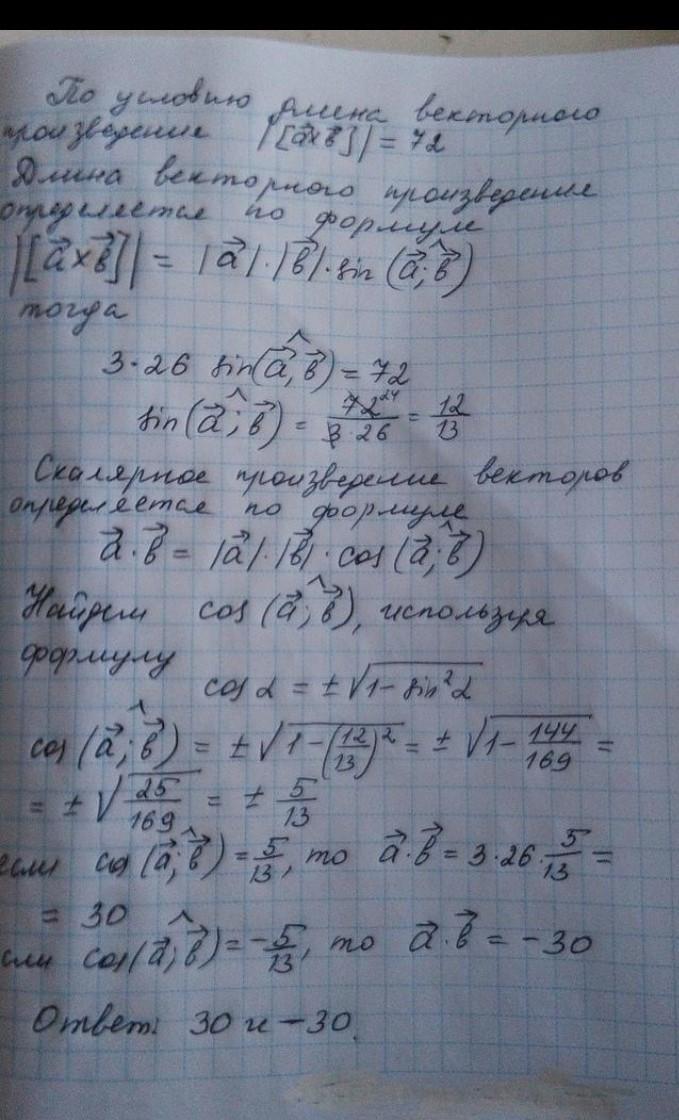 По условию длина векторного
произведение |[a⃗×b⃗]| = 72
Длина векторного произведение
определяется по формуле
|[a⃗×b⃗]| = |a⃗|·|b⃗|·sin (a⃗;^b⃗)
тогда
3·26 sin(a⃗,^b⃗) = 72
sin(a⃗;^b⃗) = 72²⁴/3·26 = 12/13
Скалярное произведение векторов
определяется по формуле
a⃗·b⃗ = |a⃗|·|b⃗|·cos(a⃗;^b⃗)
Найдем cos (a⃗;^b⃗), используя
формулу
cos α = ±√(1-sin²α)
cos (a⃗;^b⃗) = ±√(1-(12/13)²) = ±√(1-144/169) =
= ±√(25/169) = ± 5/13
если cos (a⃗;^b⃗) = 5/13, то a⃗·b⃗ = 3·26·5/13 =
= 30
если cos(a⃗;^b⃗) = -5/13, то a⃗·b⃗ = -30
Ответ: 30 и -30.